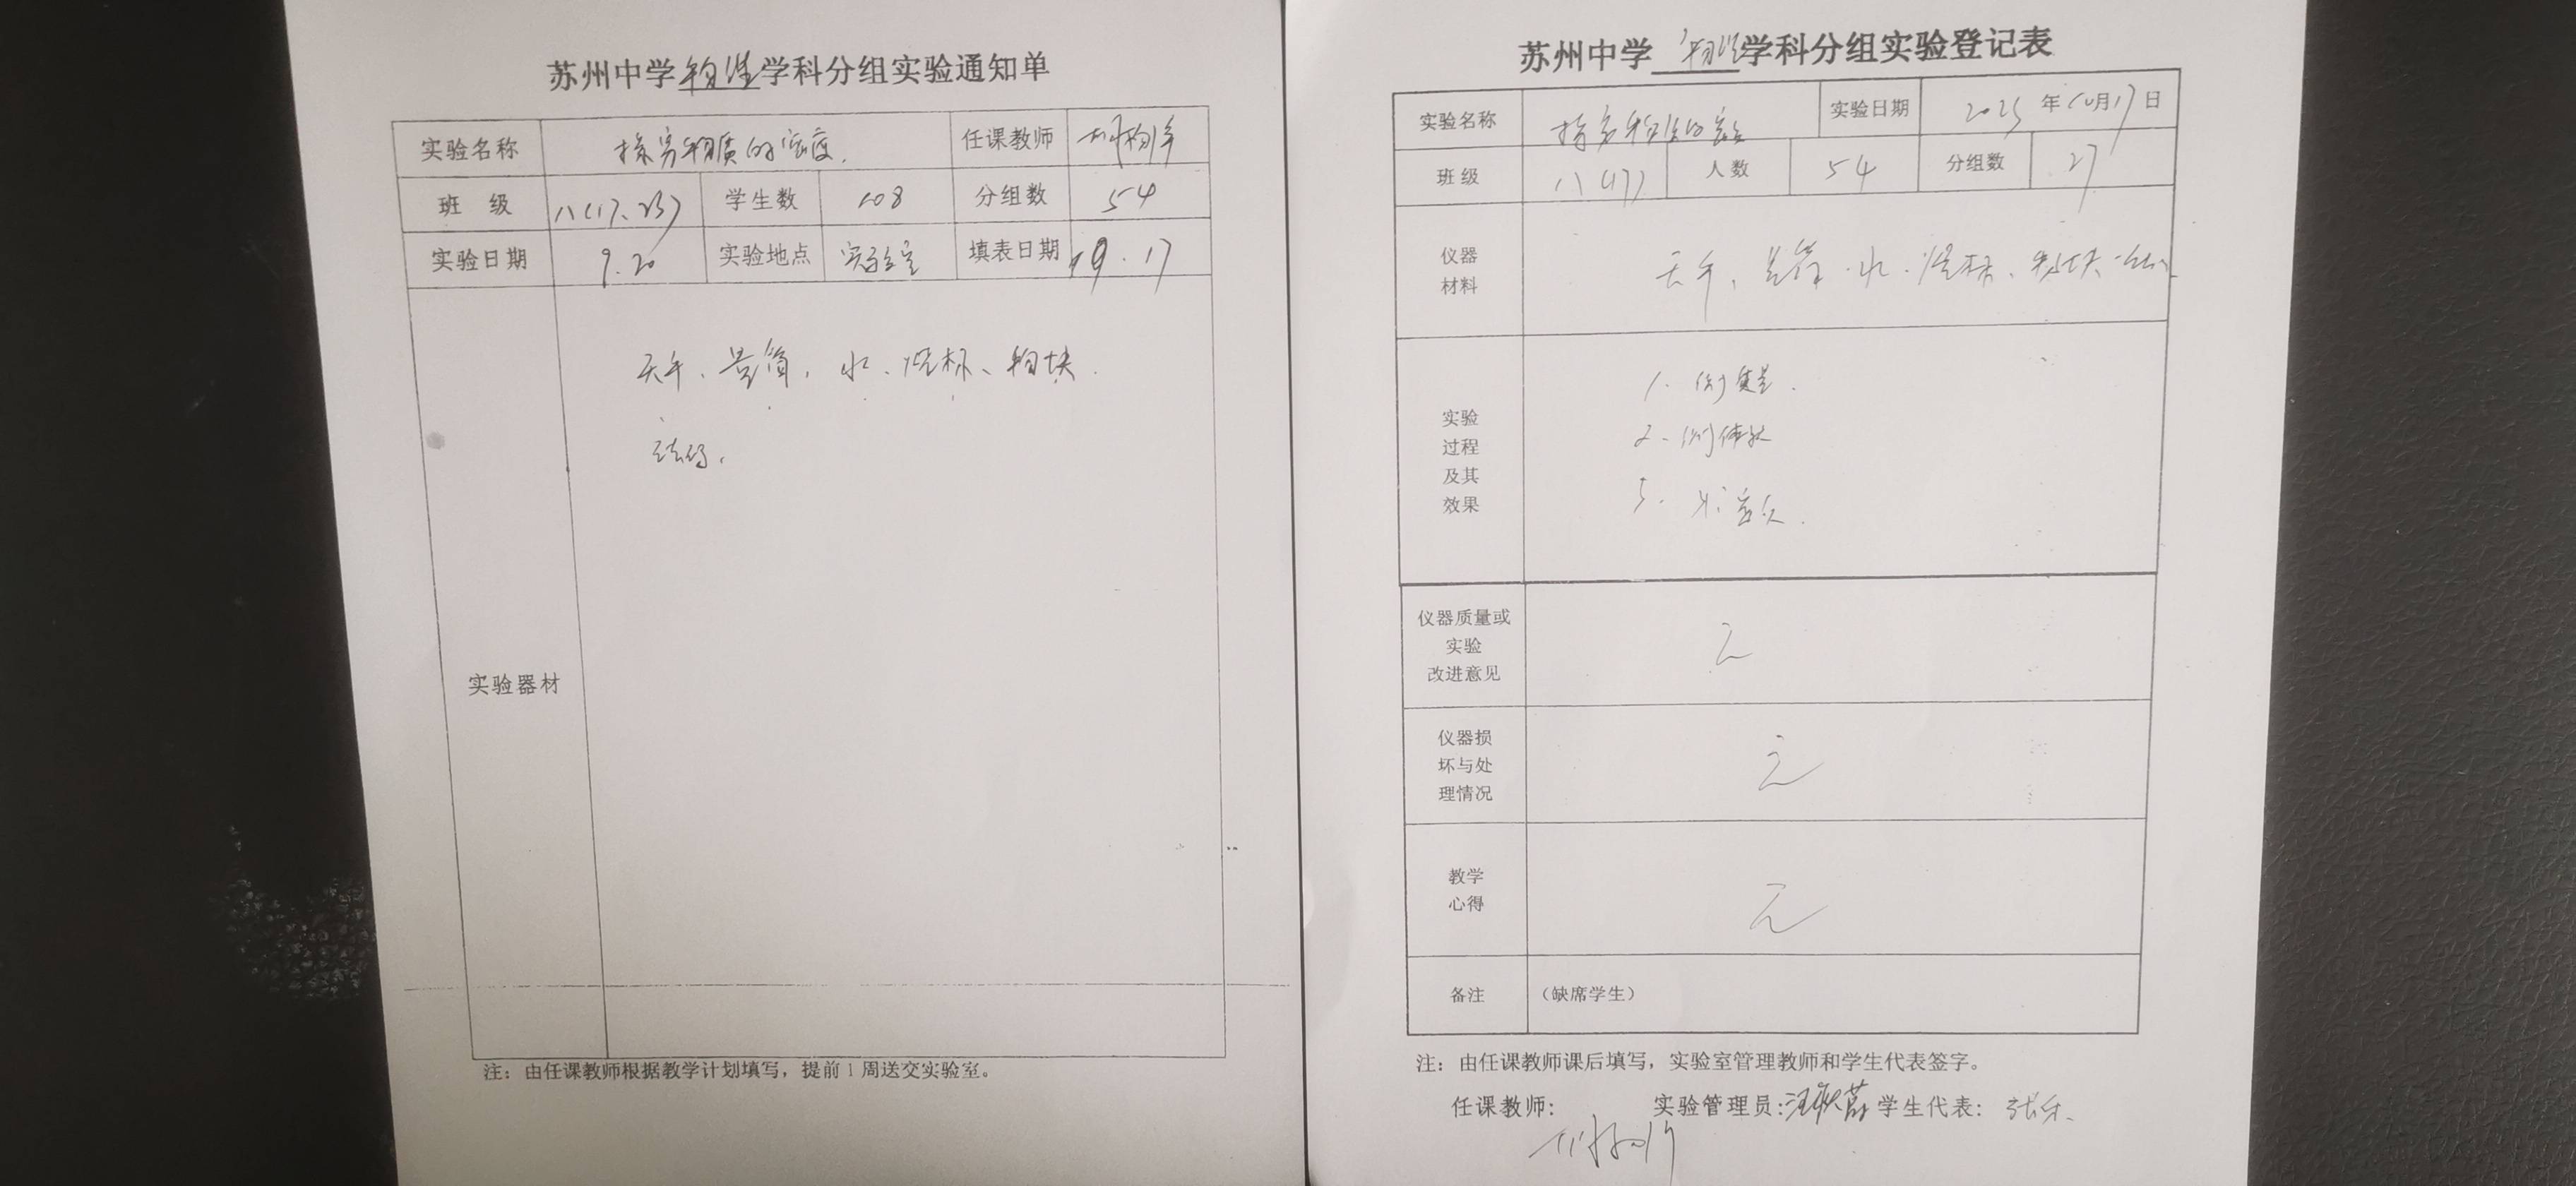 苏州中学物理学科分组实验通知单
实验名称 探究物质的密度. 任课教师
班 级 八(17、23) 学生数 108 分组数 54
实验日期 9.20 实验地点 实验室 填表日期 9.17
实验器材
天平、量筒、水、烧杯、物块.
注：由任课教师根据教学计划填写，提前1周送交实验室。
苏州中学 物理学科分组实验登记表
实验名称 探究物质的密度 实验日期 2025年10月17日
班级 八(17) 人数 54 分组数 27
仪器
材料
天平、量筒、水、烧杯、物块
实验
过程
及其
效果
1. 测质量.
2. 测体积
3. 求密度.
仪器质量或
实验
改进意见
无
仪器损
坏与处
理情况
无
教学
心得
无
备注 （缺席学生）
注：由任课教师课后填写，实验室管理教师和学生代表签字。
任课教师: 实验管理员: 学生代表: